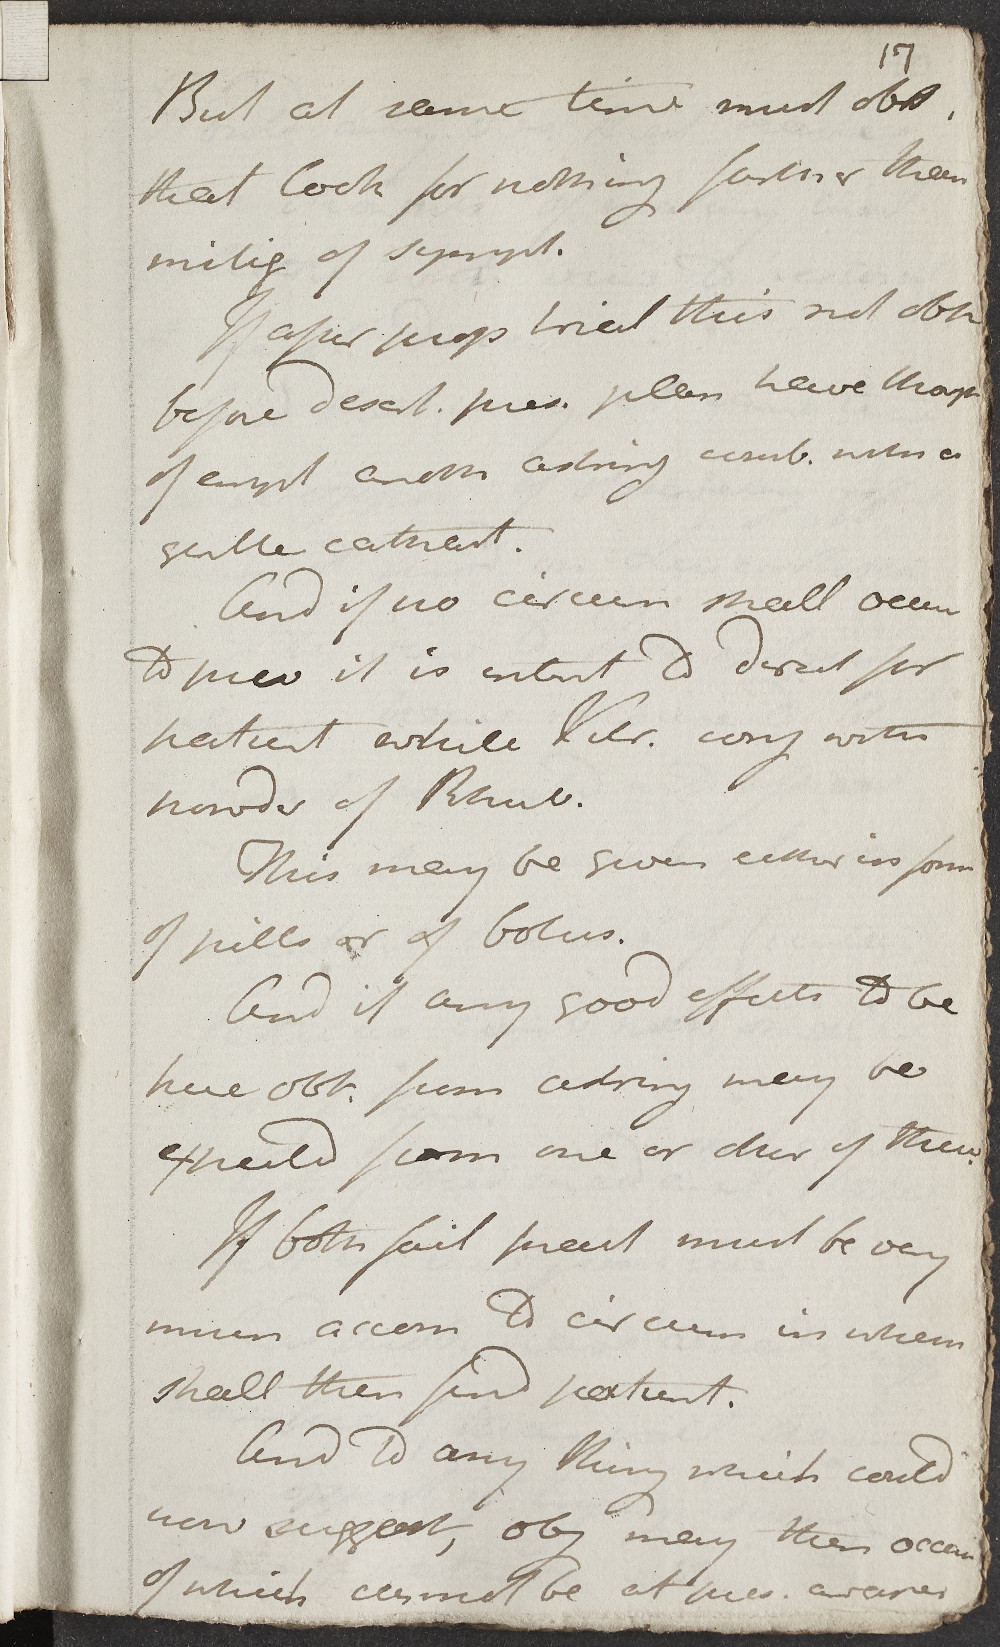 17
But at same time must obs.
that look for nothing further than
mitig of sympt.
If after prop trial this not obtn
before desert. pres. plan have thoughts
of empl anothr astring comb. with a
gentle cathart.
And if no circum shall occur
to prev it is intent to direct for
patient while Vitr. cony with
powder of Rhub.
This may be given either in form
of pills or of bolus.
And if any good effects to be
here obt. from astring may be
expected from one or other of these.
If both fail pract must be very
much accom to circum in which
shall then find patient.
And to any thing which could
now suggest, obj may then occur
of which cannot be at pres. aware